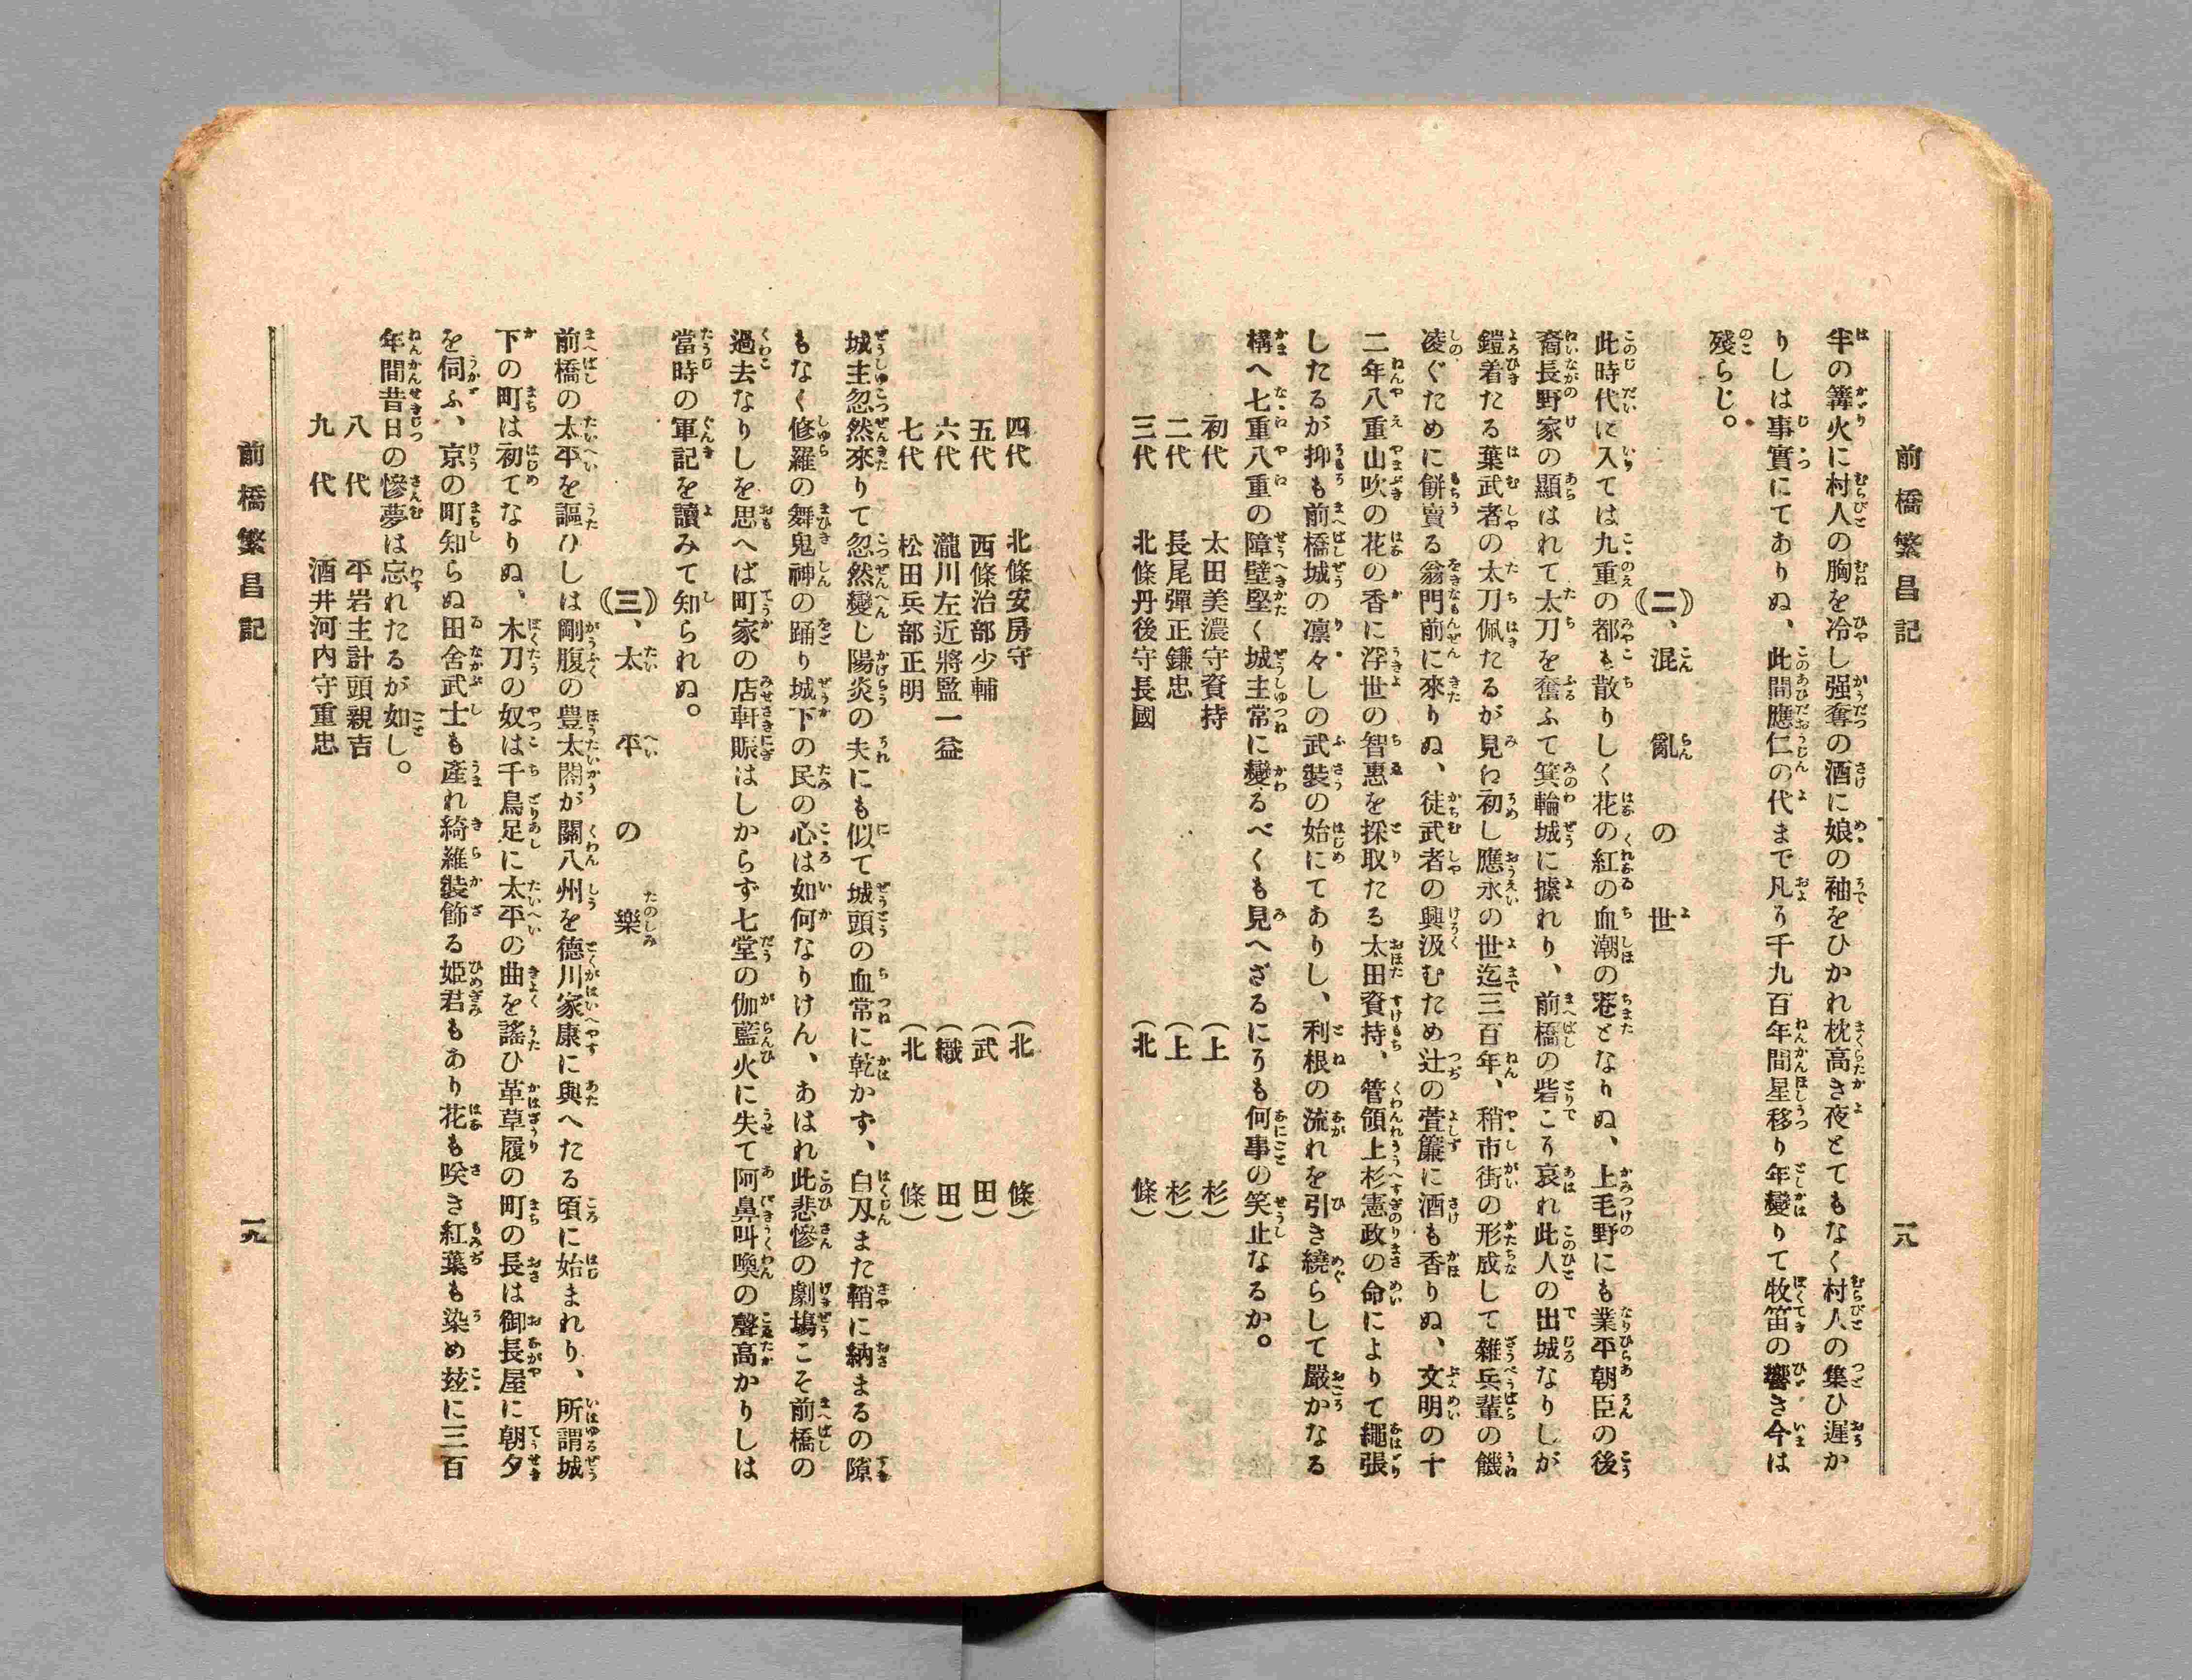 前橋繁昌記
一八
半の篝火に村人の胸を冷し强奪の酒に娘の袖をひかれ枕高き夜とてもなく村人の集ひ遅か
りしは事實にてありぬ、此間應仁の代まで凡そ千九百年間星移り年變りて牧笛の響き今は
殘らじ。
(二)、混亂の世
此時代に入ては九重の都も散りしく花の紅の血潮の巷となりぬ、上毛野にも業平朝臣の後
裔長野家の顯はれて太刀を奮ふて箕輪城に據れり、前橋の砦こそ哀れ此人の出城なりしが
鎧着たる葉武者の太刀佩たるが見ね初し應永の世迄三百年、稍市街の形成して雜兵輩の饑
凌ぐために餅賣る翁門前に來りぬ、徒武者の興汲むため辻の葭簾に酒も香りぬ、文明の十
二年八重山吹の花の香に浮世の智惠を採取たる太田資持、管領上杉憲政の命によりて繩張
したるが抑も前橋城の凛々しの武裝の始にてありし、利根の流れを引き繞らして嚴かなる
構へ七重八重の障壁堅く城主常に變るべくも見へざるにそも何事の笑止なるか。
初代 太田美濃守資持 (上杉)
二代 長尾彈正鎌忠 (上杉)
三代 北條丹後守長國 (北條)
四代 北條安房守 (北條)
五代 西條治部少輔 (武田)
六代 瀧川左近將監一益 (織田)
七代 松田兵部正明 (北條)
城主忽然來りて忽然變じ陽炎の夫にも似て城頭の血常に乾かず、白刄また鞘に納まるの隙
もなく修羅の舞鬼神の踊り城下の民の心は如何なりけん、あはれ此悲慘の劇塲こそ前橋の
過去なりしを思へば町家の店軒賑はしからず七堂の伽藍火に失て阿鼻叫喚の聲高かりしは
當時の軍記を讀みて知られぬ。
(三)、太平の樂
前橋の太平を謳ひしは剛腹の豊太閤が關八州を德川家康に與へたる頃に始まれり、所謂城
下の町は初てなりぬ、木刀の奴は千鳥足に太平の曲を謠ひ革草履の町の長は御長屋に朝夕
を伺ふ、京の町知らぬ田舍武士も產れ綺羅裝飾る姫君もあり花も咲き紅葉も染め玆に三百
年間昔日の慘夢は忘れたるが如し。
八代 平岩主計頭親吉
九代 酒井河内守重忠
前橋繁昌記
一九